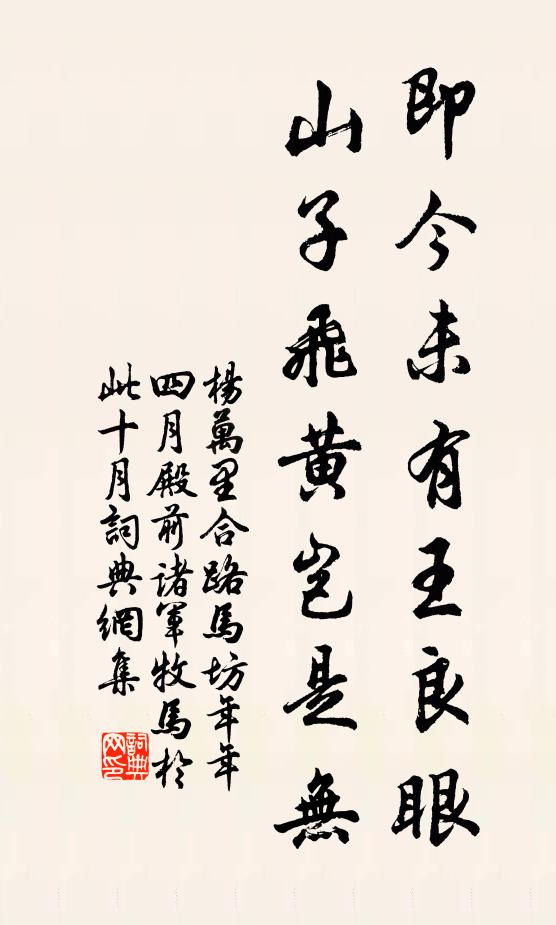 即今未有王良眼
山子飛黃豈是無
楊萬里合路馬坊年年
四月殿前諸軍牧馬於
此十月詞典網集
詞典网印